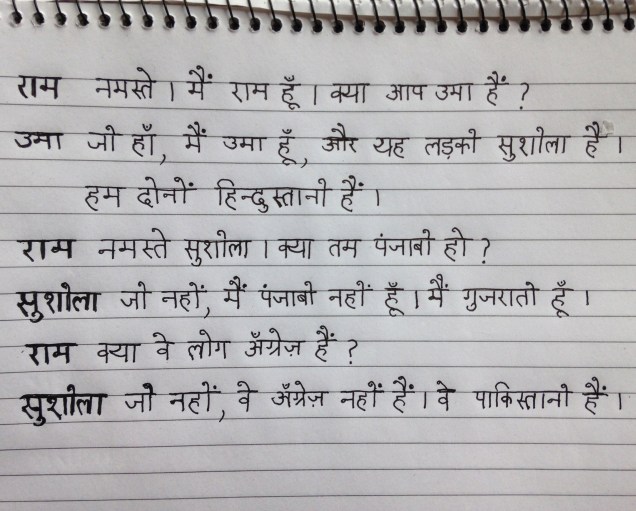 राम नमस्ते । मैं राम हूँ । क्या आप उमा हैं ?
उमा जी हाँ, मैं उमा हूँ, और यह लड़की सुशीला है ।
हम दोनों हिन्दुस्तानी हैं ।
राम नमस्ते सुशीला । क्या तम पंजाबी हो ?
सुशीला जी नहीं, मैं पंजाबी नहीं हूँ । मैं गुजराती हूँ ।
राम क्या वे लोग अँग्रेज़ हैं ?
सुशीला जी नहीं, वे अँग्रेज़ नहीं हैं । वे पाकिस्तानी हैं ।